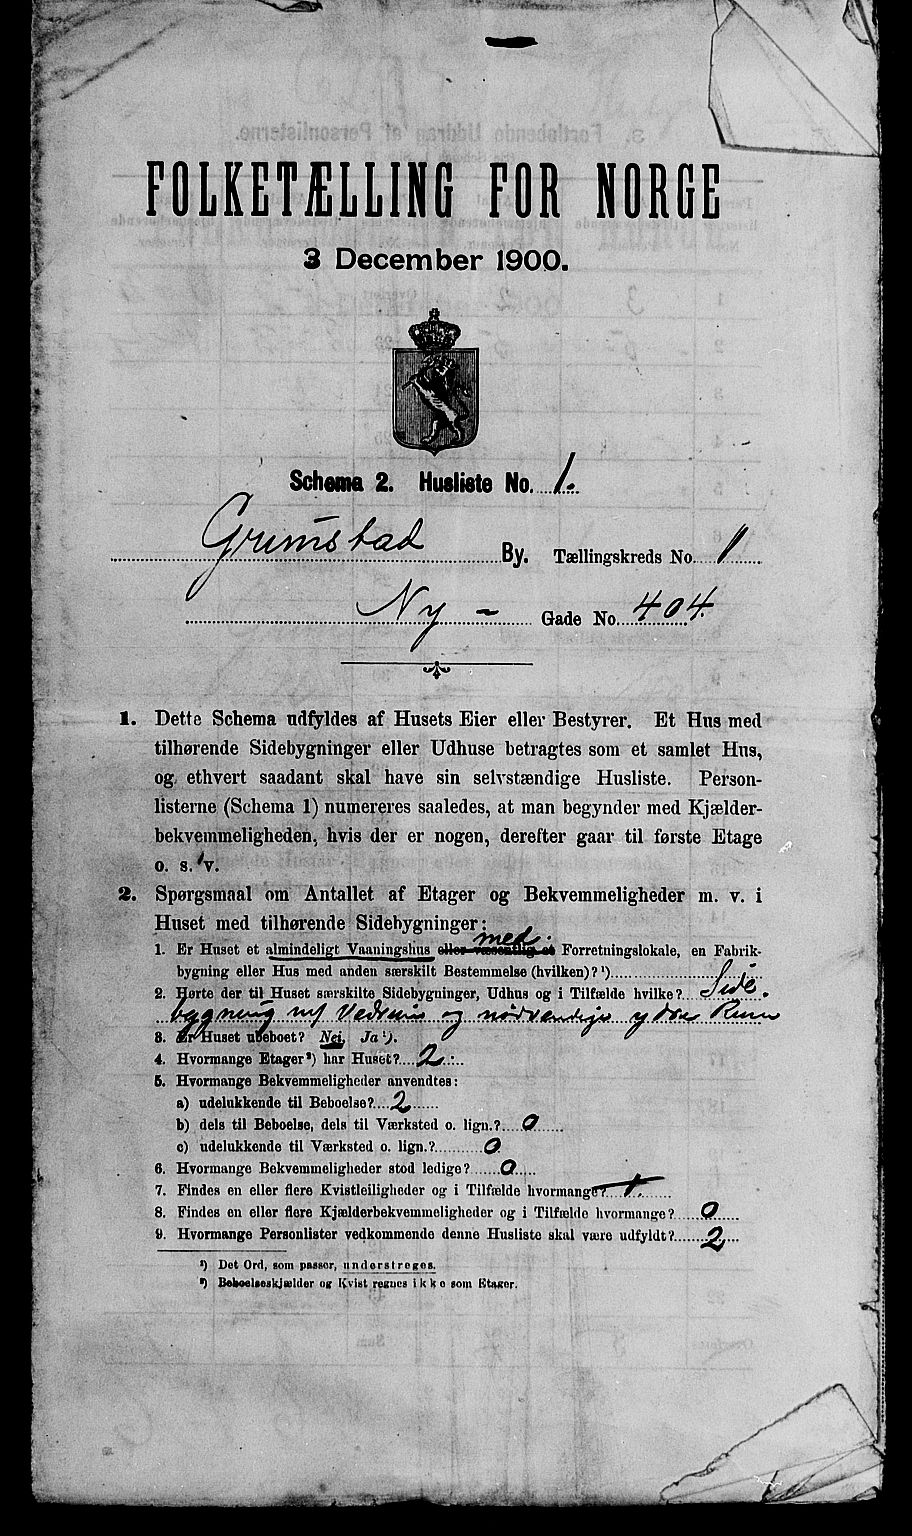 FOLKETÆLLING FOR NORGE
3 December 1900.
Schema 2. Husliste No. 1.
Grimstad By. Tællingskreds No. 1
Ny - Gade No. 404.
1. Dette Schema udfyldes af Husets Eier eller Bestyrer. Et Hus med
tilhørende Sidebygninger eller Udhuse betragtes som et samlet Hus,
og ethvert saadant skal have sin selvstændige Husliste. Person-
listerne (Schema 1) numereres saaledes, at man begynder med Kjælder-
bekvemmeligheden, hvis der er nogen, derefter gaar til første Etage
o. s. v.
2. Spørgsmaal om Antallet af Etager og Bekvemmeligheder m. v. i
Huset med tilhørende Sidebygninger:
med
1. Er Huset et almindeligt Vaaningshus eller væsentlig et Forretningslokale, en Fabrik-
bygning eller Hus med anden særskilt Bestemmelse (hvilken)? ¹)
2. Hørte der til Huset særskilte Sidebygninger, Udhus og i Tilfælde hvilke? Side-
bygning og nødvendige ydre Rum
3. Er Huset ubeboet? Nei, Ja ¹).
4. Hvormange Etager ²) har Huset? 2
5. Hvormange Bekvemmeligheder anvendtes:
a) udelukkende til Beboelse? 2
b) dels til Beboelse, dels til Værksted o. lign.? 0
c) udelukkende til Værksted o. lign.? 0
6. Hvormange Bekvemmeligheder stod ledige? 0
7. Findes en eller flere Kvistleiligheder og i Tilfælde hvormange? 1.
8. Findes en eller flere Kjælderbekvemmeligheder og i Tilfælde hvormange? 0
9. Hvormange Personlister vedkommende denne Husliste skal være udfyldt? 2
¹) Det Ord, som passer, understreges.
²) Beboelseskjælder og Kvist regnes ikke som Etager.